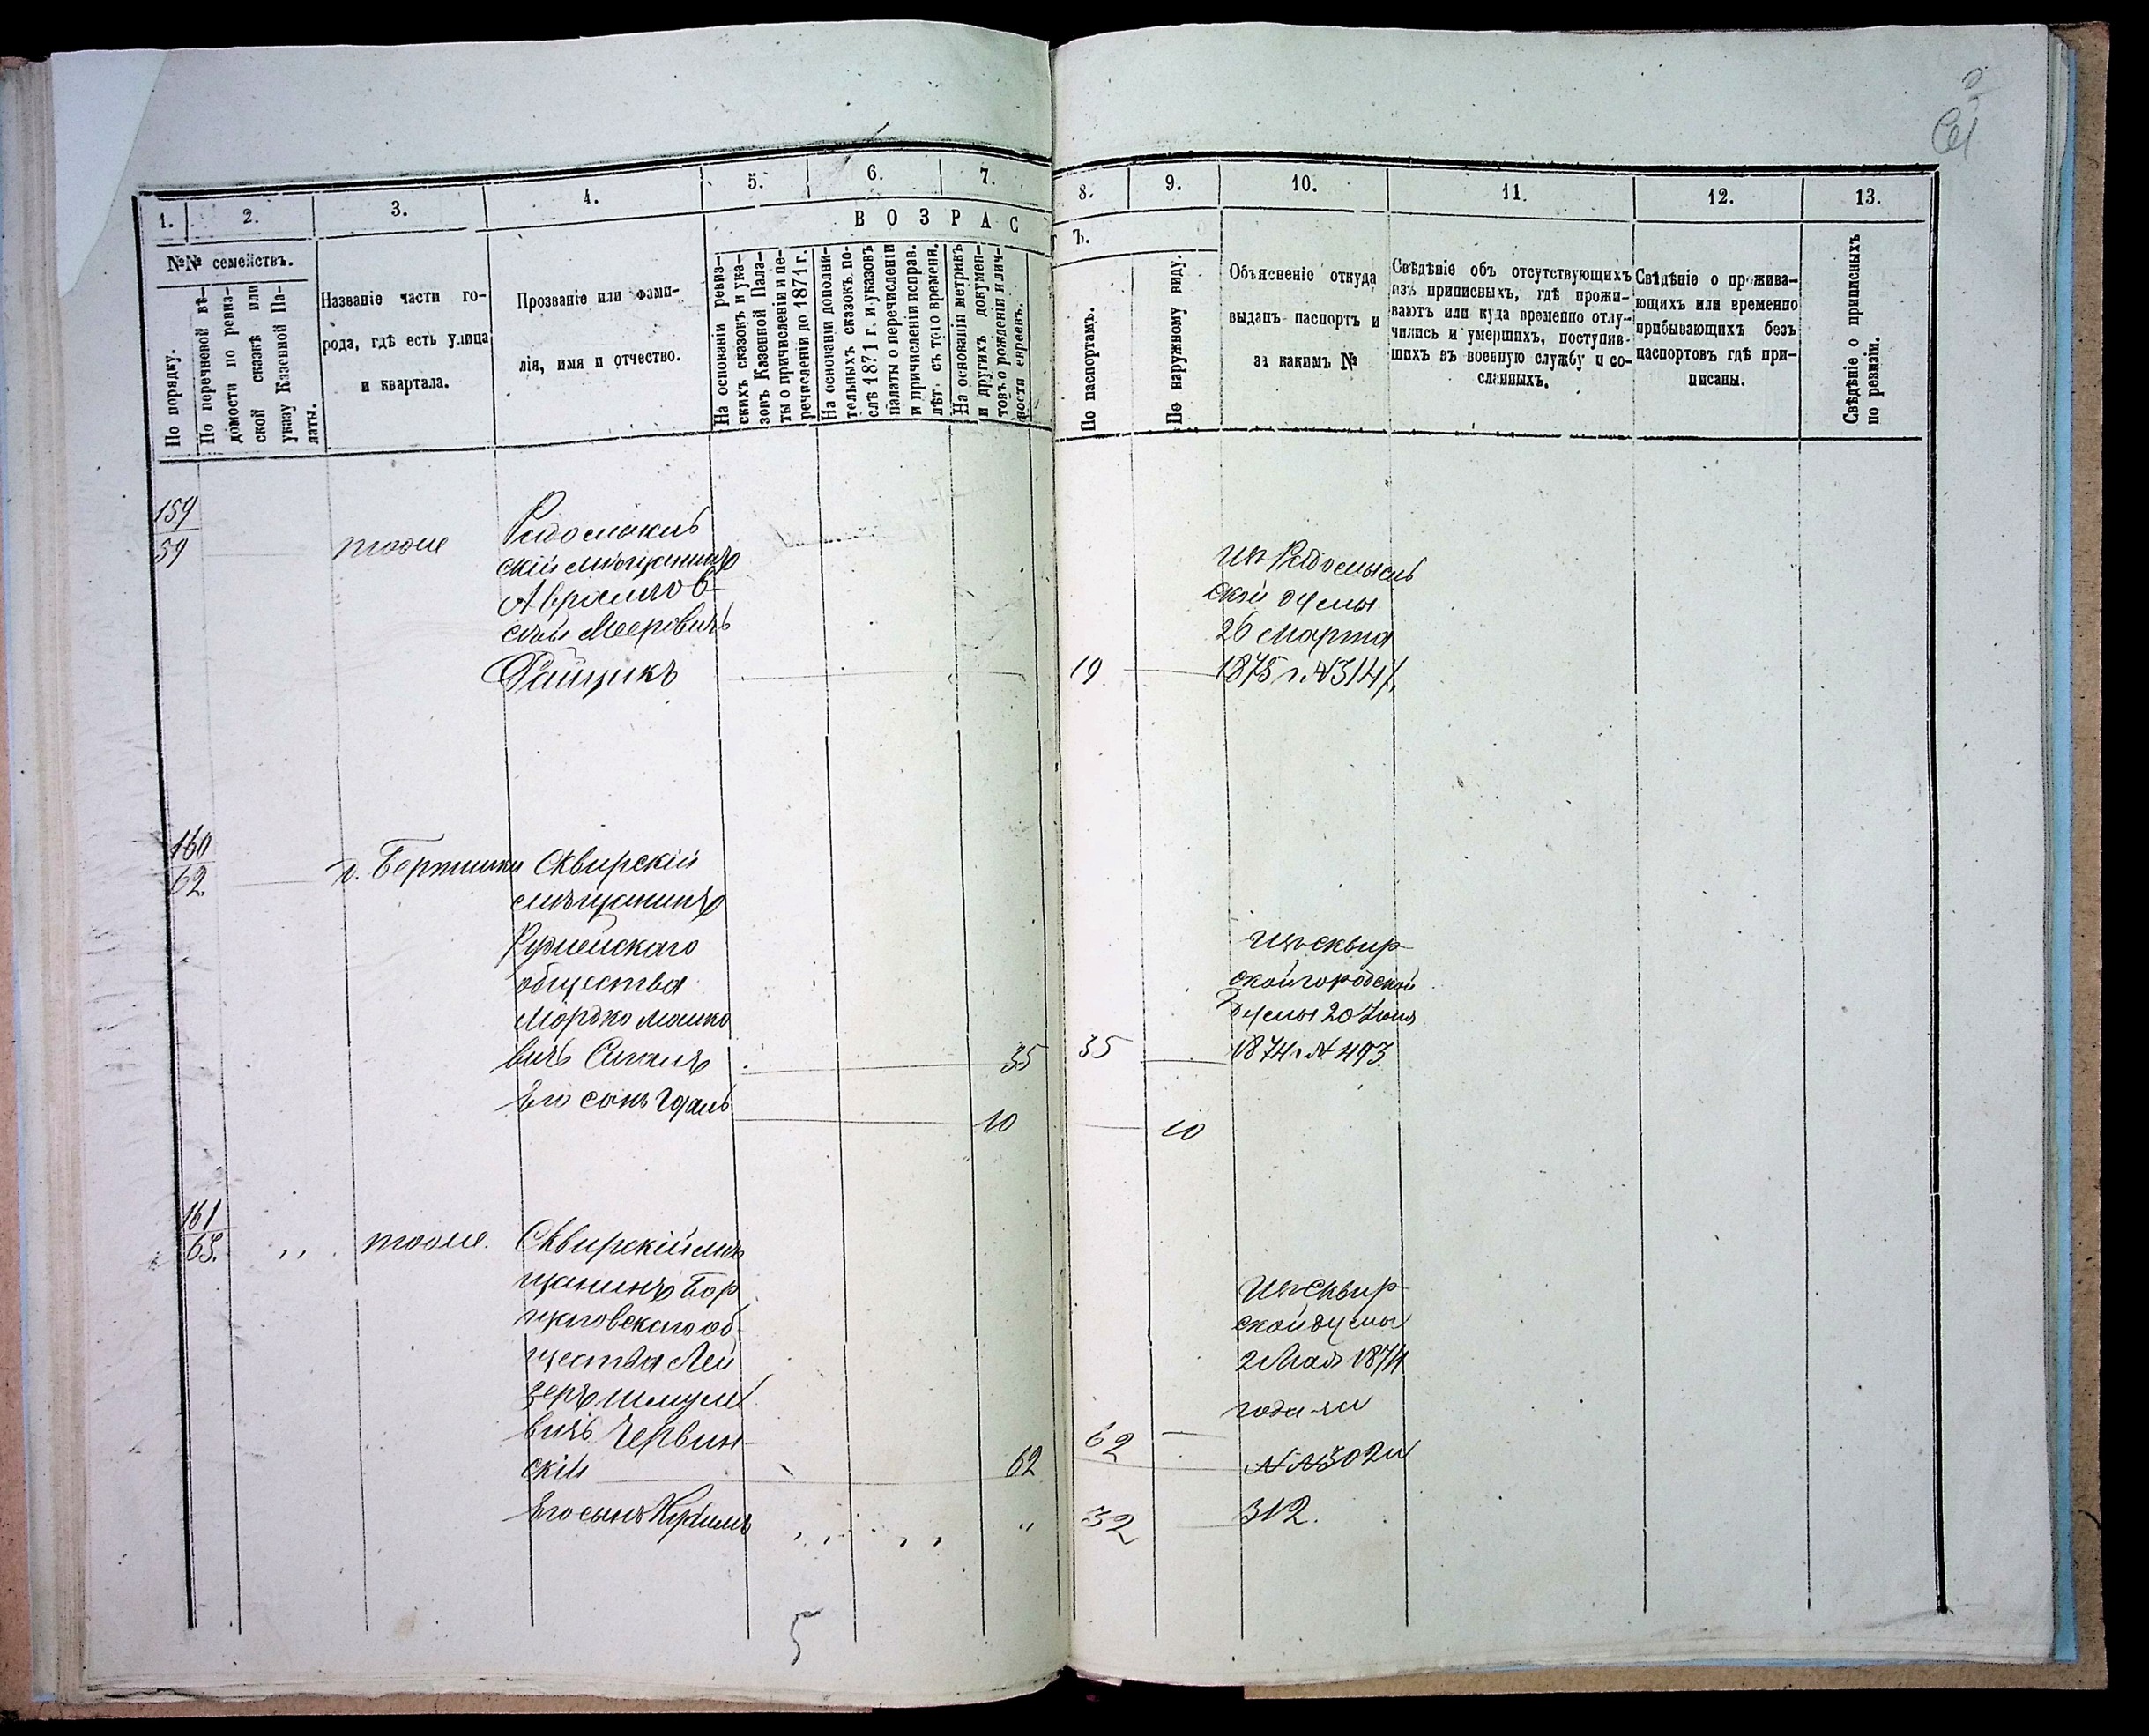 1.
2.
3.
4.
5.
6.
7.
8.
9.
10.
11.
12.
13.
ВОЗРАС
Ъ.
№№ семействъ.
По порядку.
По перечневой вѣ-
домости по ревиз-
ской сказкѣ или
указу Казенной Па-
латы.
Названіе части го-
рода, гдѣ есть улица
и квартала.
Прозваніе или фами-
лія, имя и отчество.
На основаніи ревиз-
скихъ сказокъ и ука-
зовъ Казенной Пала-
ты о причисленіи и пе-
речисленіи до 1871 г.
На основаніи дополни-
тельныхъ сказокъ по-
слѣ 1871 г. и указовъ
палаты о перечисленіи
и причисленіи исправ.
лѣт. съ того времени.
На основаніи метрикъ
и другихъ докумен-
товъ о рожденіи и лич-
ности евреевъ.
По паспортамъ.
По наружному виду.
Объясненіе откуда
выданъ паспортъ и
за какимъ №
Свѣдѣніе объ отсутствующихъ
изъ приписныхъ, гдѣ прожи-
ваютъ или куда временно отлу-
чились и умершихъ, поступив-
шихъ въ военную службу и со-
сланныхъ.
Свѣдѣніе о прожива-
ющихъ или временно
прибывающихъ безъ
паспортовъ гдѣ при-
писаны.
Свѣдѣніе о приписныхъ
по ревизіи.
159
59
тоже
скій мѣщанинъ
Мееровичъ
19
26 Марта
1875 г. №3147.
160
62.
Сквирскій
мѣщанинъ
общества
Мордко Мошко
вичъ
35
35
Изъ Сквир
ской городской
Думы 20 Іюня
1874 г. № 493.
Его сынъ
10
10
161
63.
тоже.
Сквирскій мѣ
щанинъ Бор
щаговскаго об
щества Лей
зеръ Шмуле
вичъ Червин-
скій
62
62
Изъ Сквир
ской думы
2 Мая 1874
года за
№№ 302 и
Его сынъ
32
312.
5